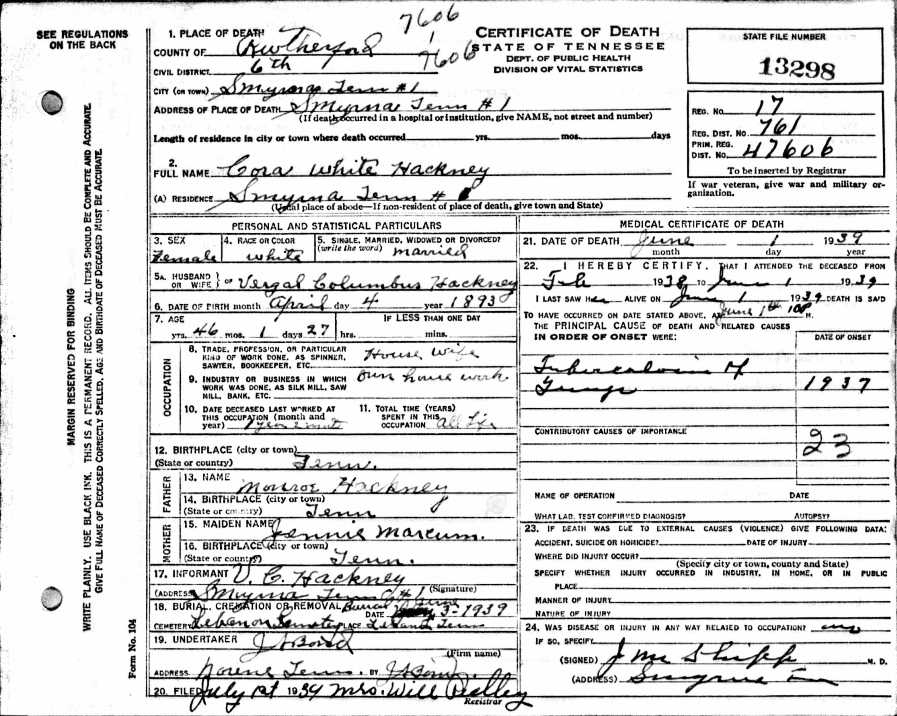 7606
1
7606
SEE REGULATIONS
ON THE BACK
MARGIN RESERVED FOR BINDING
WRITE PLAINLY. USE BLACK INK. THIS IS A PERMANENT RECORD. ALL ITEMS SHOULD BE COMPLETE AND ACCURATE.
GIVE FULL NAME OF DECEASED CORRECTLY SPELLED. AGE AND BIRTHDATE OF DECEASED MUST BE ACCURATE.
Form No. 104
CERTIFICATE OF DEATH
STATE OF TENNESSEE
DEPT. OF PUBLIC HEALTH
DIVISION OF VITAL STATISTICS
STATE FILE NUMBER
13298
REG. No. 17
REG. DIST. No. 761
PRIM. REG.
DIST. No. 47606
To be inserted by Registrar
If war veteran, give war and military organization.
1. PLACE OF DEATH
COUNTY OF Rutherford
CIVIL DISTRICT 6th
CITY (OR TOWN) Smyrna Tenn #1
ADDRESS OF PLACE OF DEATH Smyrna Tenn #1
(If death occurred in a hospital or institution, give NAME, not street and number)
Length of residence in city or town where death occurred yrs. mos. days
2.
FULL NAME Cora White Hackney
(A) RESIDENCE Smyrna Tenn #
(Usual place of abode—If non-resident of place of death, give town and State)
PERSONAL AND STATISTICAL PARTICULARS
3. SEX Female
4. RACE OR COLOR white
5. SINGLE, MARRIED, WIDOWED OR DIVORCED? (write the word) married
5A. HUSBAND OR WIFE OF Vergal Columbus Hackney
6. DATE OF BIRTH month April day 4 year 1893
7. AGE IF LESS THAN ONE DAY
yrs. 46 mos. 1 days 27 hrs. mins.
OCCUPATION
8. TRADE, PROFESSION, OR PARTICULAR KIND OF WORK DONE, AS SPINNER, SAWYER, BOOKKEEPER, ETC. House wife
9. INDUSTRY OR BUSINESS IN WHICH WORK WAS DONE, AS SILK MILL, SAW MILL, BANK, ETC. own house work
10. DATE DECEASED LAST WORKED AT THIS OCCUPATION (month and year)
11. TOTAL TIME (YEARS) SPENT IN THIS OCCUPATION All Life
12. BIRTHPLACE (city or town)
(State or country) Tenn.
FATHER
13. NAME Monroe Hackney
14. BIRTHPLACE (city or town)
(State or country) Tenn
MOTHER
15. MAIDEN NAME Jennie Marcum.
16. BIRTHPLACE (city or town)
(State or country) Tenn.
17. INFORMANT V. C. Hackney
(Signature)
(ADDRESS) Smyrna Tenn #1
18. BURIAL, CREMATION OR REMOVAL Burial DATE 3-1939
CEMETERY Lebanon Cemetery PLACE Tenn
19. UNDERTAKER
(Firm name)
ADDRESS Norene Tenn. BY
20. FILED July 1st 1939 Mrs. Will
Registrar
MEDICAL CERTIFICATE OF DEATH
21. DATE OF DEATH June 1 1939
month day year
22. I HEREBY CERTIFY, THAT I ATTENDED THE DECEASED FROM
Feb 1938, to June 1
I LAST SAW her ALIVE ON June 1 1939 DEATH IS SAID
TO HAVE OCCURRED ON DATE STATED ABOVE, AT June 1st M.
THE PRINCIPAL CAUSE OF DEATH AND RELATED CAUSES
IN ORDER OF ONSET WERE: DATE OF ONSET
Tuberculosis of
Lungs 1937
CONTRIBUTORY CAUSES OF IMPORTANCE
23
NAME OF OPERATION DATE
WHAT LAB. TEST CONFIRMED DIAGNOSIS? AUTOPSY?
23. IF DEATH WAS DUE TO EXTERNAL CAUSES (VIOLENCE) GIVE FOLLOWING DATA:
ACCIDENT, SUICIDE OR HOMICIDE? DATE OF INJURY
WHERE DID INJURY OCCUR?
(Specify city or town, county and State)
SPECIFY WHETHER INJURY OCCURRED IN INDUSTRY, IN HOME, OR IN PUBLIC
PLACE
MANNER OF INJURY
NATURE OF INJURY
24. WAS DISEASE OR INJURY IN ANY WAY RELATED TO OCCUPATION?
IF SO, SPECIFY
(SIGNED) J M Shipp M. D.
(ADDRESS) Smyrna Tenn